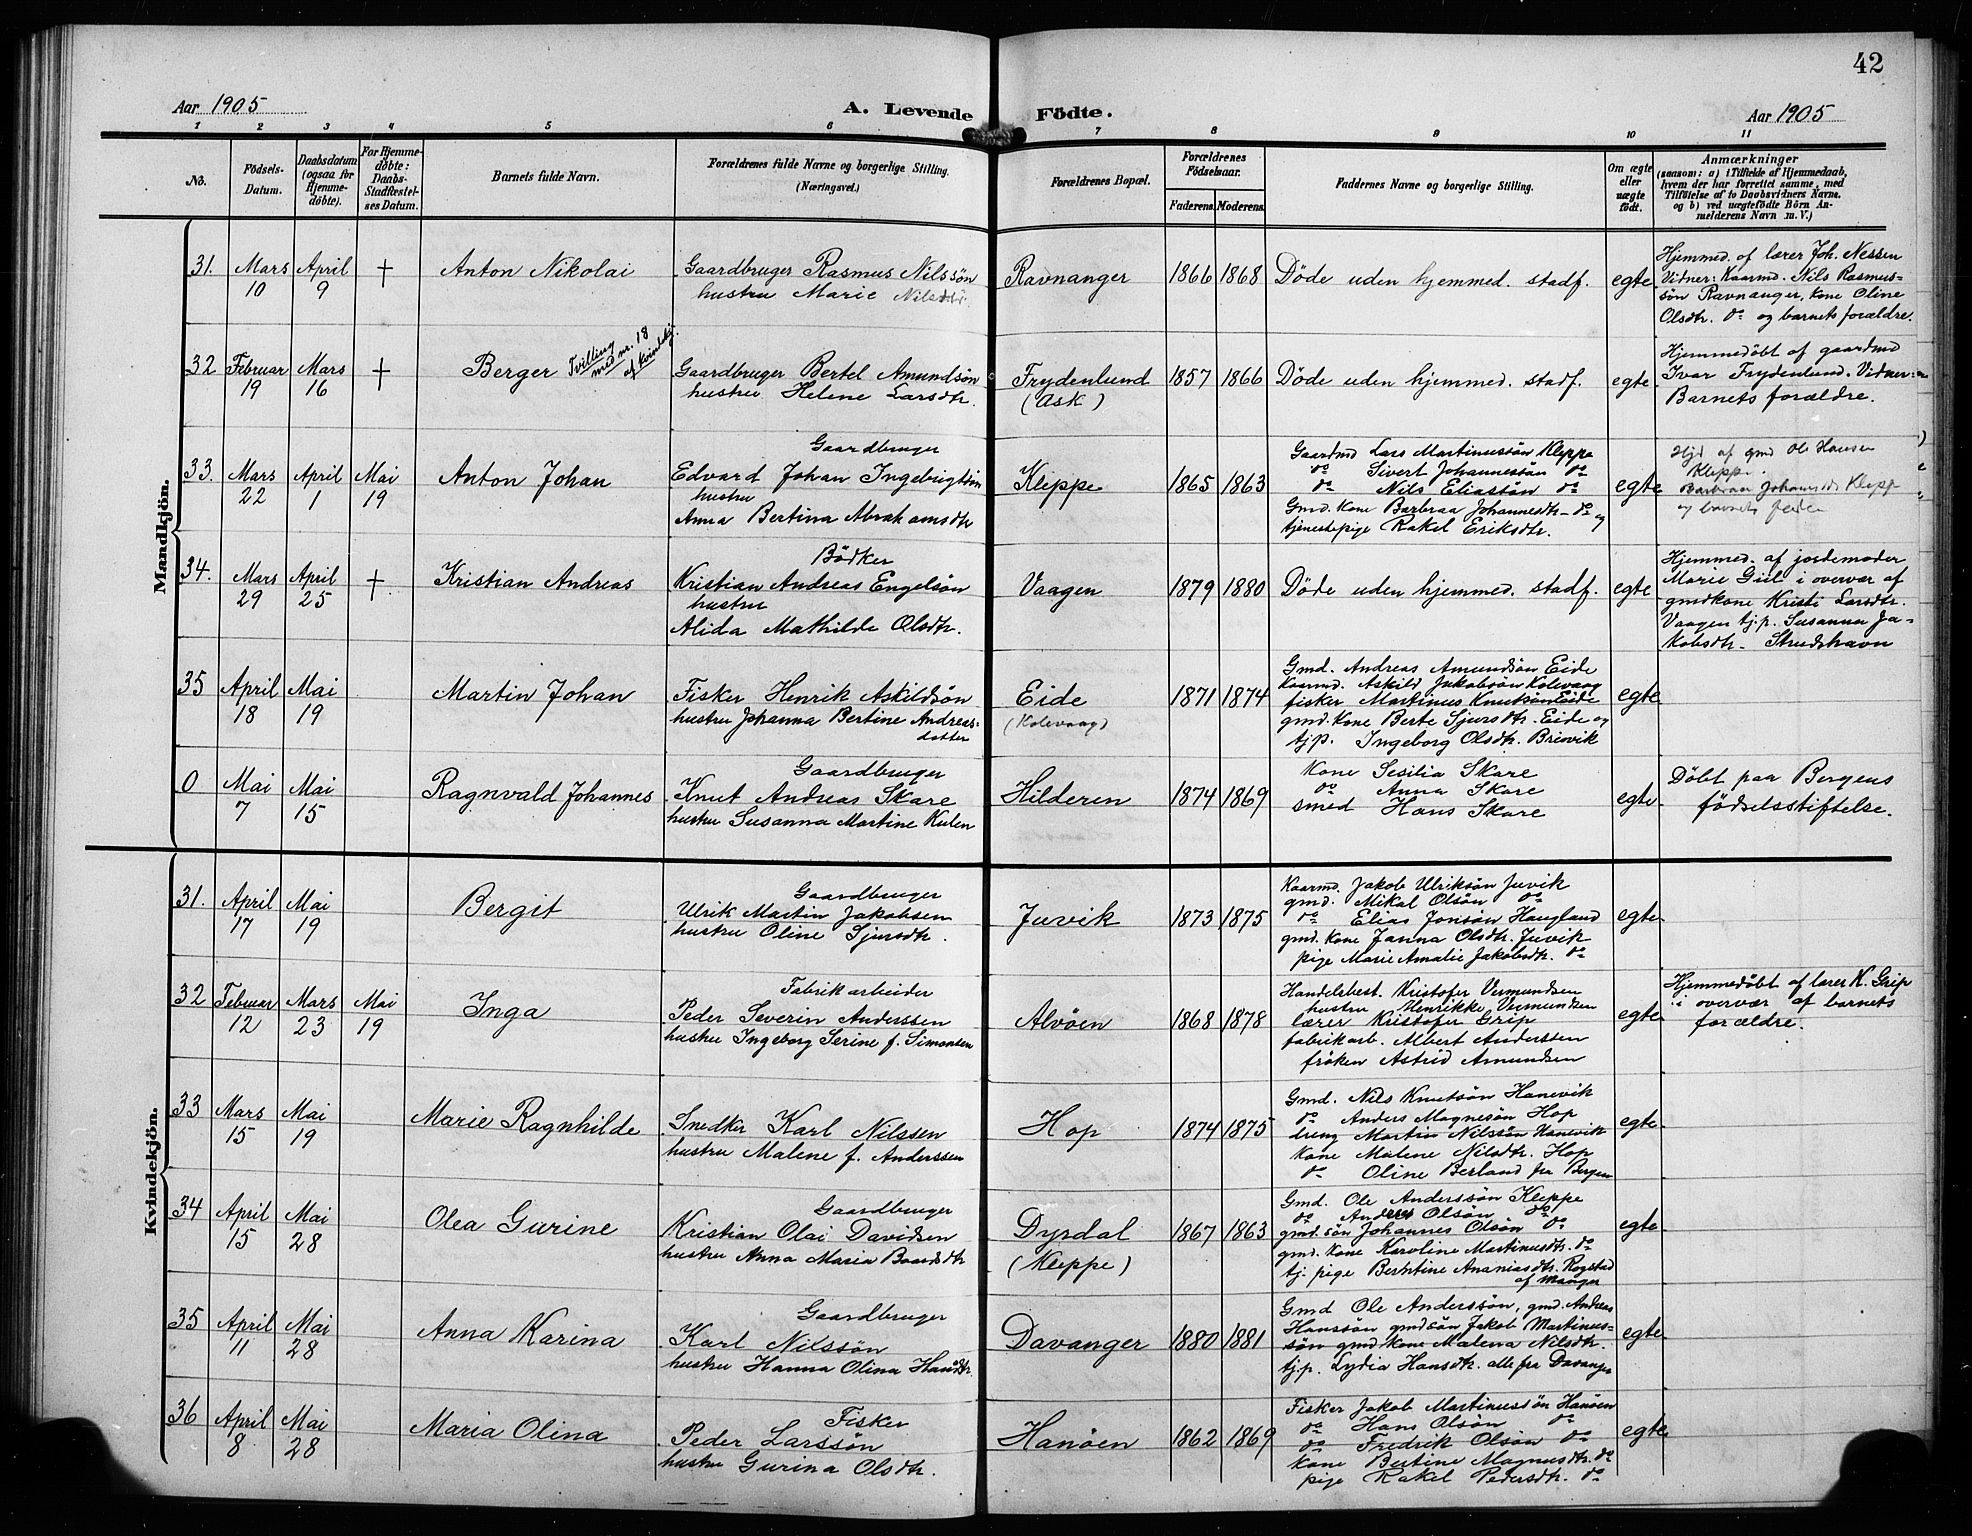 42
Aar 1905
A. Levende Födte.
Aar 1905
1 2 3 4 5 6 7 8 9 10 11
No.
Födsels-Datum.
Daabsdatum (ogsaa for Hjemme-döbte).
For Hjemme-döbte: Daabs-Stadfæstel-ses Datum.
Barnets fulde Navn.
Forældrenes fulde Navne og borgerlige Stilling.
(Næringsvei.)
Forældrenes Bopæl.
Forældrenes Födselsaar.
Faderens. Moderens.
Faddernes Navne og borgerlige Stilling.
Om ægte eller uægte födt.
Anmærkninger
(saasom: a) i Tilfælde af Hjemmedaab,
hvem der har forrettet samme, med
Tilföielse af to Daabsvidners Navne.
og b) ved uægtefödte Börn An-
melderens Navn m. V.)
Mandkjön.
31. Mars 10 April 9 + Anton Nikolai
Gaardbruger Rasmus Nilssön
hustru Marie Nilsdtr.
Ravnanger 1866 1868 Döde uden hjemmed. stadf. egte
Hjemmed. af lærer Joh. Nessen
Vidner: Kaarmd. Nils Rasmus-
sön Ravnanger, kone Oline
Olsdtr. do og barnets forældre.
32 Februar 19 Mars 16 + Berger
Tvilling
med nr. 18
af kvindekj.
Gaardbruger Bertel Amundsön
hustru Helene Larsdtr.
Frydenlund
(Ask)
1857 1866 Döde uden hjemmed. stadf. egte
Hjemmedöbt af gaardmd
Ivar Frydenlund. Vidner:
Barnets forældre.
33. Mars 22 April 1 Mai 19 Anton Johan
Gaardbruger
Edvard Johan Ingebrigtsön
hustru
Anna Bertina Abrahamsdtr
Kleppe 1865 1863
Gaardmd Lars Martinussön Kleppe
do Sivert Johannessön do
do Nils Eliassön do
Gmd. kone Barbraa Johannesdtr. do og
tjenestepige Rakel Eriksdtr.
egte
Hjd af gmd Ole Hansen
Klepp.
Barbraa Johansdtr Klepp
og barnets fader
34. Mars 29 April 25 + Kristian Andreas
Bödker
Kristian Andreas Engelsön
hustru
Alida Mathilde Olsdtr.
Vaagen 1879 1880 Döde uden hjemmed. stadf. egte
Hjemmed. af jordemoder
Marie Giil i overvær af
gmdkone Kristi Larsdtr.
Vaagen tj.p. Susanna Ja-
kobsdtr. Strudshavn
35 April 18 Mai 19 Martin Johan
Fisker Henrik Askildsön
hustru Johanna Bertine Andreas-
datter
Eide
(Kolevaag)
1871 1874
Gmd. Andreas Amundsön Eide
Kaarmd. Askild Jakobsön Kolevaag
fisker Martinus Knutsön Eide
gmd. kone Berte Sjursdtr. Eide og
tjp. Ingeborg Olsdtr. Breivik
egte
0 Mai 7 Mai 15 Ragnvald Johannes
Gaardbruger
Knut Andreas Skare
hustru Susanna Martine Kulen
Hilderen 1874 1869
Kone Sesilia Skare
do Anna Skare
smed Hans Skare
egte
Döbt paa Bergens
födselsstiftelse.
Kvindekjön.
31. April 17 Mai 19 Bergit
Gaardbruger
Ulrik Martin Jakobsen
hustru Oline Sjursdtr.
Juvik 1873 1875
Kaarmd. Jakob Ulriksön Juvik
gmd. Mikal Olsön do
do Elias Jonsön Haugland
gmd. kone Janna Olsdtr. Juvik
pige Marie Amalie Jakobsdtr. do
egte
32 Februar 12 Mars 23 Mai 19 Inga
Fabrikarbeider
Peder Severin Anderssen
hustru Ingeborg Serine f. Simonsen
Alvöen 1868 1878
Handelsbest. Kristofer Vermundsen
hustru Henrikke Vermundsen
lærer Kristofer Grip
fabrikarb. Albert Anderssen
fröken Astrid Amundsen
egte
Hjemmedöbt af lærer K. Grip
i overvær af barnets
forældre.
33 Mars 15 Mai 19 Marie Ragnhilde
Snedker Karl Nilssen
hustru Malene f. Anderssen
Hop 1874 1875
Gmd. Nils Knutsön Hanevik
do Anders Magnesön Hop
dreng Martin Nilssön Hanevik
kone Malene Nilsdtr. Hop
do Oline Berland fra Bergen
egte
34 April 15 Mai 28 Olea Gurine
Gaardbruger
Kristian Olai Davidsen
hustru Anna Maria Baardsdtr
Dysdal
(Kleppe)
1867 1863
Gmd. Ole Anderssön Kleppe
do Anders Olsön do
gmd. sön Johannes Olsön do
gmd. kone Karoline Martinusdtr. do
tj. pige Berntine Ananiasdtr. Rogstad
af Manger
egte
35 April 11 Mai 28 Anna Karina
Gaardbruger
Karl Nilssön
hustru Hanna Olina Hansdtr.
Davanger 1880 1881
Gmd Ole Anderssön, gmd. Andreas
Hanssön gmdsön Jakob Martinus-
sön gmdkone Malena Nilsdtr.
tj.p. Lydia Hansdtr. alle fra Davanger
egte
36 April 8 Mai 28 Maria Olina
Fisker
Peder Larssön
hustru Gurina Olsdtr.
Hanöen 1862 1869
Fisker Jakob Martinussön Hanöen
do Hans Olsön do
do Fredrik Olsön do
kone Bertine Magnusdtr. do
pige Rakel Pedersdtr. do
egte